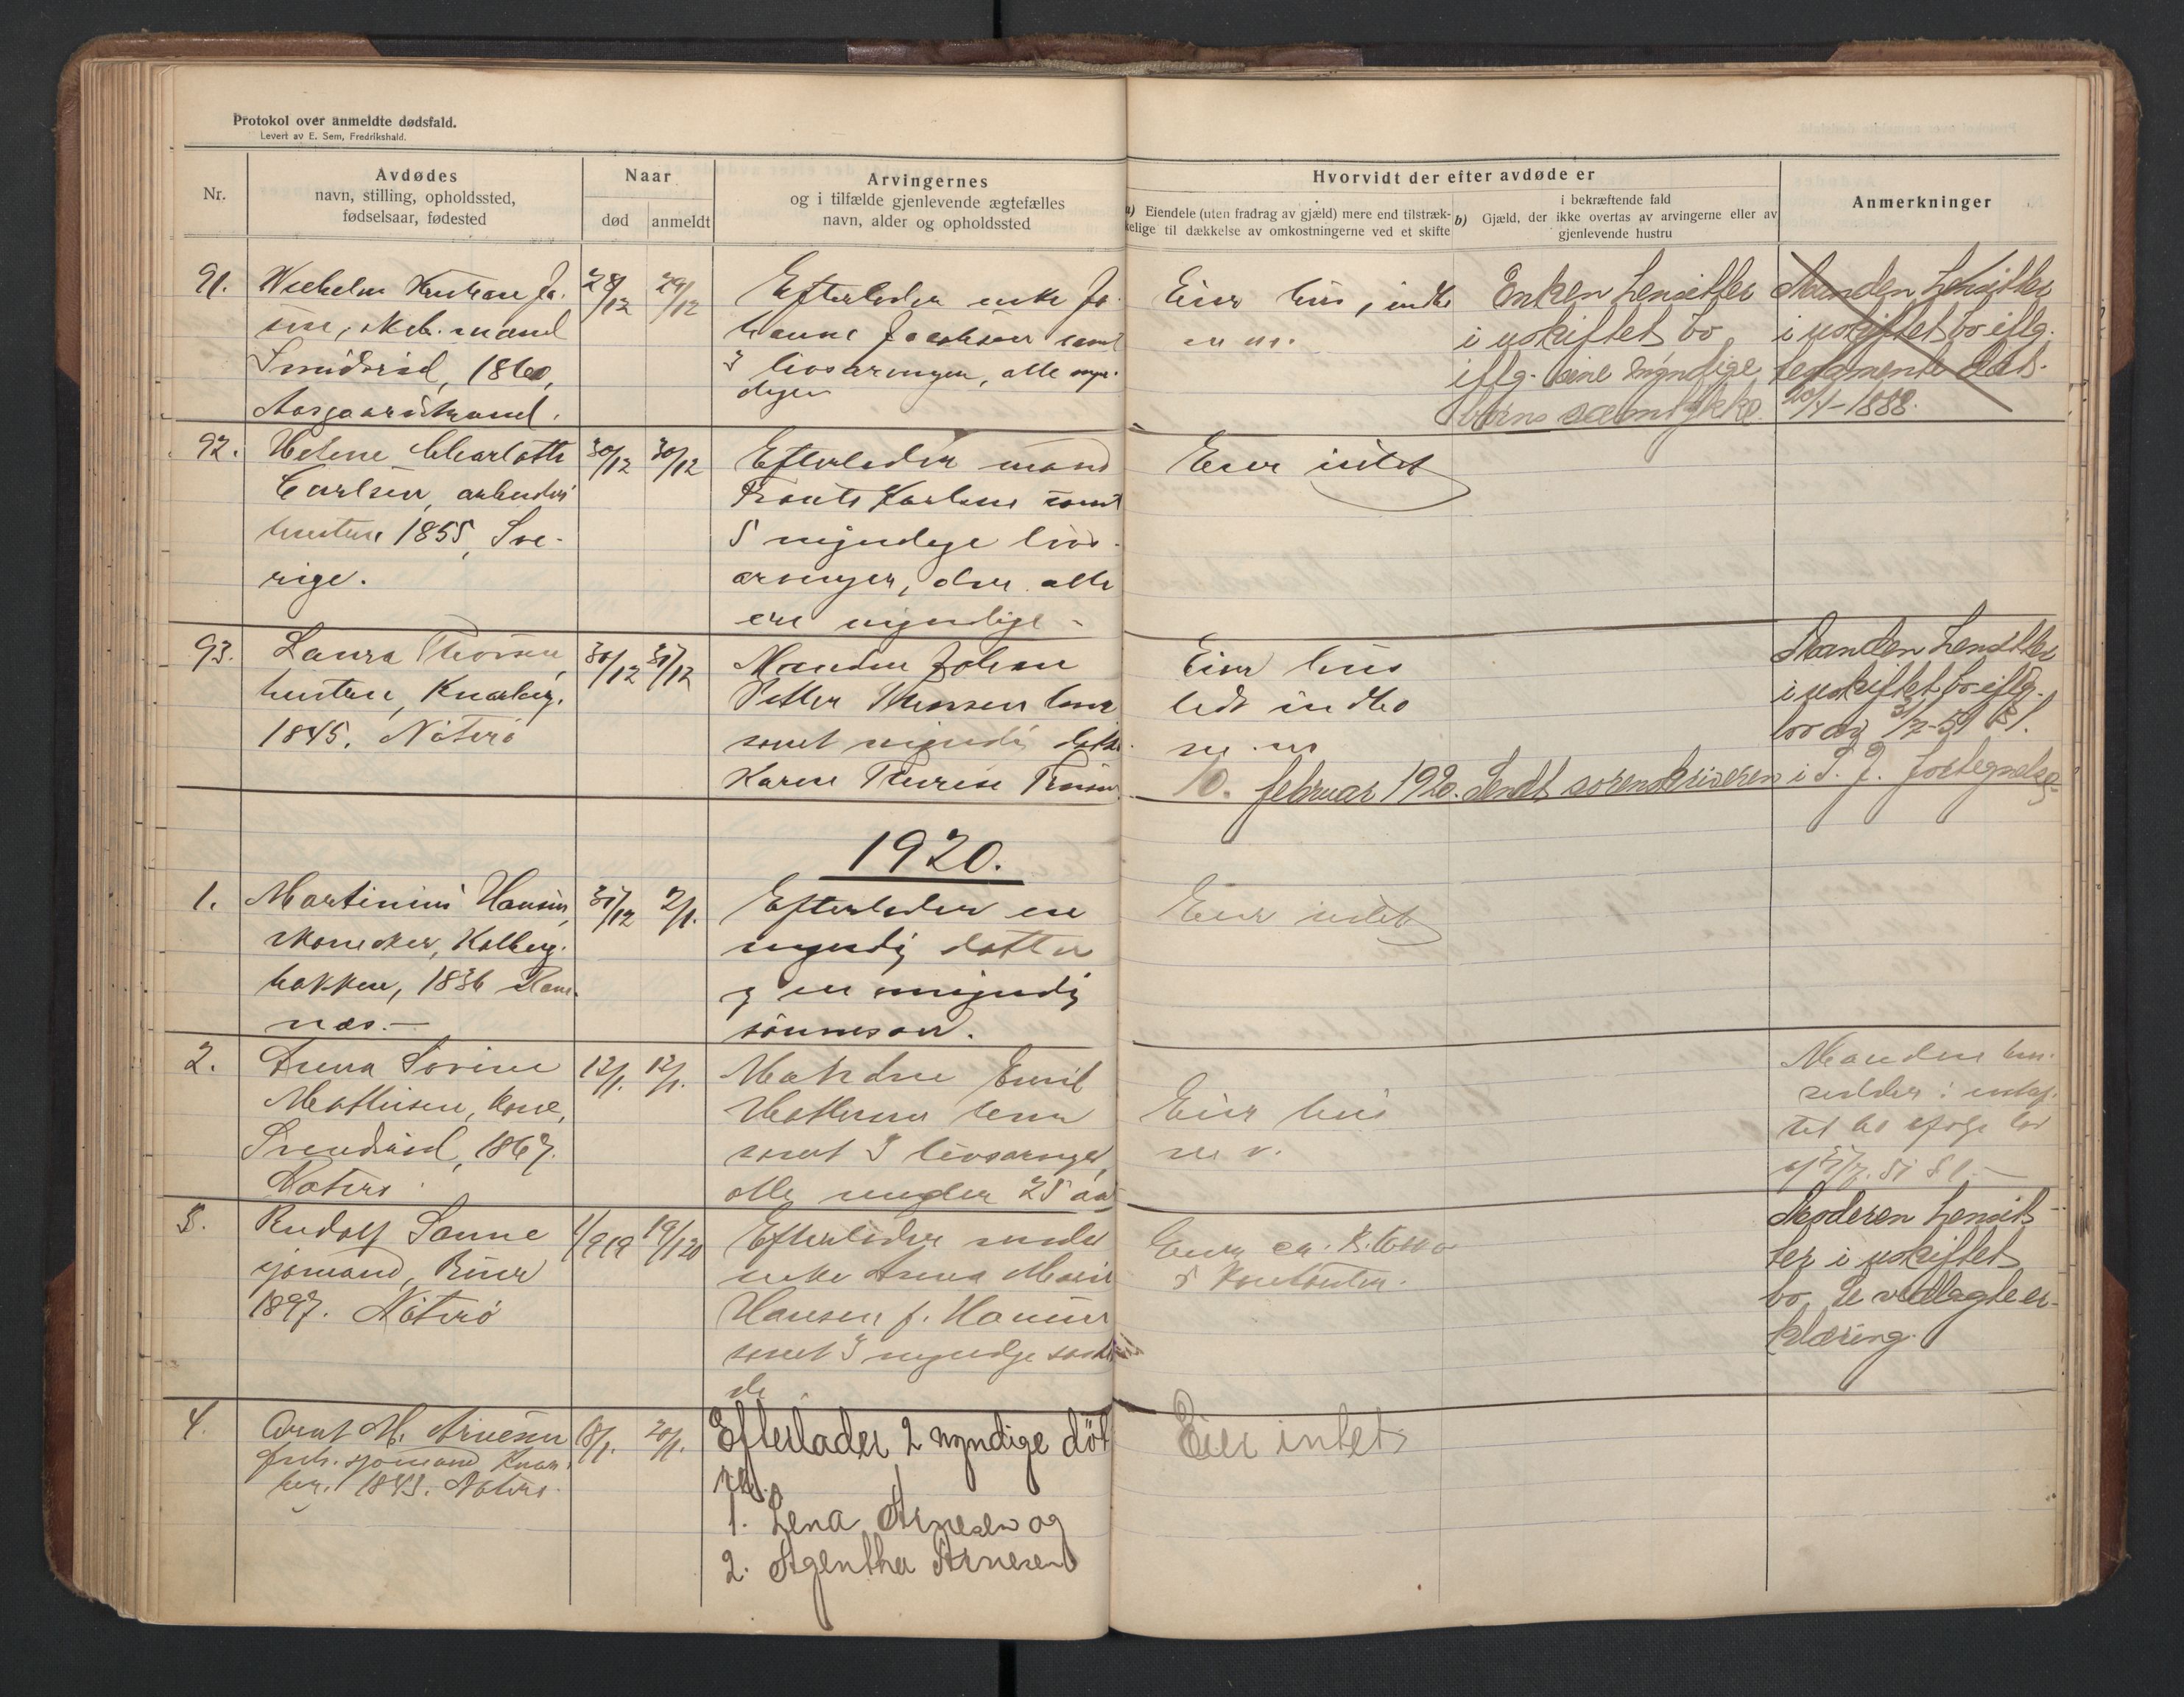 Protokol over anmeldte dødsfald.
Levert av E. Sem, Fredrikshald.
Nr.
Avdødes
navn, stilling, opholdssted,
fødselsaar, fødested
Naar
død
anmeldt
Arvingernes
og i tilfælde gjenlevende ægtefælles
navn, alder og opholdssted
Hvorvidt der efter avdøde er
a) Eiendele (uten fradrag av gjæld) mere end tilstræk-
kelige til dækkelse av omkostningerne ved et skifte
b)
i bekræftende fald
Gjæld, der ikke overtas av arvingerne eller av
gjenlevende hustru
Anmerkninger
91.
Aasgaardstrand.
28/12
29/12
Efterlader enke Jo-
hanne samt
3 livsarvinger, alle myn-
dige
Eier hus, indbo
m.m.
Enken hensitter
i uskiftet bo
iflg. sine myndige
børns samtykke.
Manden hensitter
i uskiftet bo iflg.
testamente dat.
20/4-1888.
92.
Helene Charlotte
Carlsen, arbeider
hustru 1855, Sve-
rige.
30/12
30/12
Efterlader mand
samt
5 myndige livs-
arvinger, der alle
ere myndige -
Eier intet
93.
Laura Thorsen,
hustru, Knarberg.
1845. Nøterø
30/12
31/12
Manden Johan
Petter Thorsen
samt myndig datter
Karen Therese
Eier hus
lidt indbo
m.m
Manden hensitter
i uskiftet bo iflg.
lov av 31/7-51 § 1.
10. februar 1920. Sendt sorenskriveren i S. J. fortegnelse
1920.
1.
Martinius Hansen,
Kolberg-
bakken, 1836 Ram-
næs. -
31/12
2/1.
Efterlader en
myndig datter
og en umyndig
sønnesøn.
Eier intet
2.
Anna Sovine
Mathisen, kone,
1867.
Nøterø
12/1.
12/1.
Manden Emil
Mathisen
samt 3 livsarvinger,
alle under 25 aar
Eier hus
m. v.
Manden hen-
sidder i uskif-
tet bo ifølge lov
af 31/7. 51 § 1. -
3.
Rudolf Sanne
sjømand,
1897. Nøterø
1/9 19
19/1 20
Efterlader moder
enke Anna Marie
Hansen f. Hansen
samt 3 myndige søsken-
de
Eier ca. Kr.
i kontanter.
Moderen hensit-
ter i uskiftet
bo. Se vedlagte er-
klæring.
4.
Arnt M. Arnesen
forh. sjømand Knar-
ber. 1843. Nøterø.
18/1.
20/1.
Efterlader 2 myndige døt
re.
1. Lena Arnesen og
2. Agentha Arnesen
Eier intet